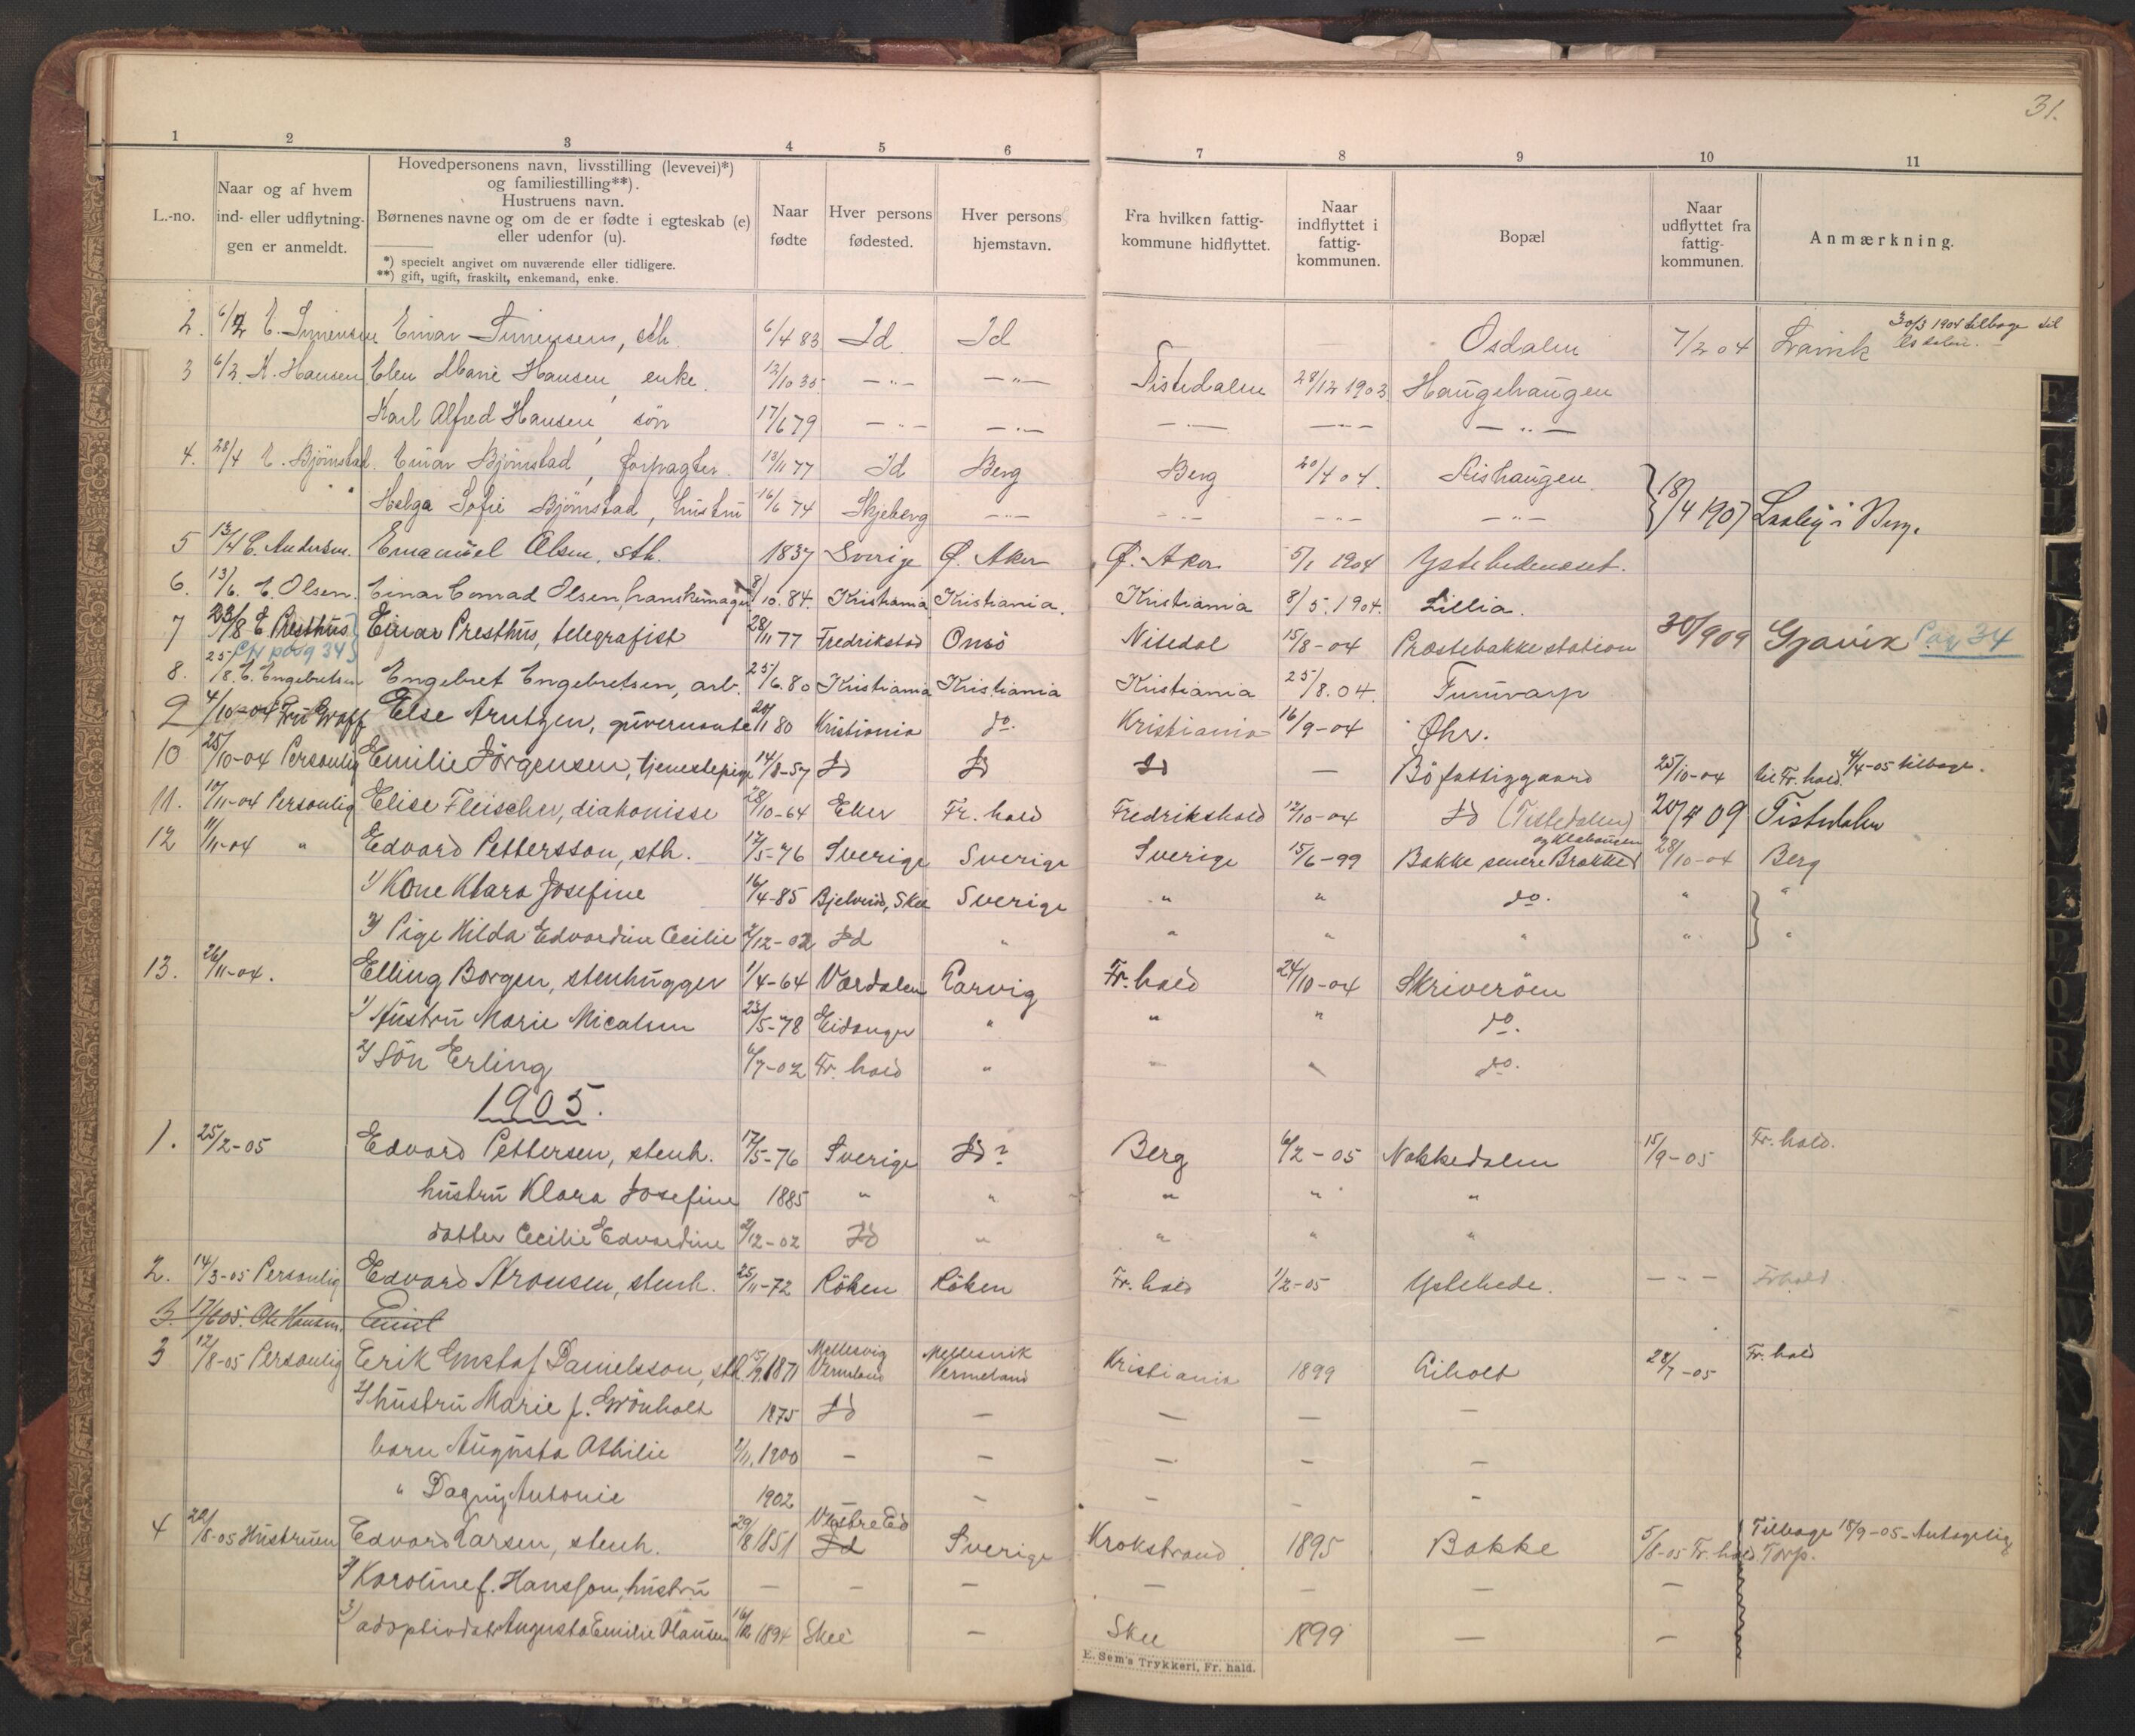 31.
1 2 3 4 5 6 7 8 9 10 11
L.-no.
Naar og af hvem
ind- eller udflytnin-
gen er anmeldt.
Hovedpersonens navn, livsstilling (levevei)*)
og familiestilling**).
Hustruens navn.
Børnenes navne og om de er fødte i egteskab (e)
eller udenfor (u).
*) specielt angivet om nuværende eller tidligere.
**) gift, ugift, fraskilt, enkemand, enke.
Naar
fødte
Hver persons
fødested.
Hver persons
hjemstavn.
Fra hvilken fattig-
kommune hidflyttet.
Naar
indflyttet i
fattig-
kommunen.
Bopæl
Naar
udflyttet fra
fattig-
kommunen.
Anmærkning.
30/3 1904 tilbage til
2. 6/2 E. Simensen Einar Simensen, sth. 6/4 83 Id Id — Osdalen 7/2 04
3 6/2. K. Hansen Elen Marie Hansen, enke. 12/10 35 —"— —"— Tistedalen 28/12 1903 Haugehaugen
Karl Alfred Hansen, søn 17/6 79 —"— —"— —"— —"— —"—
4. 28/4 E. Bjørnstad. Einar Bjørnstad, forpagter. 13/11 77 Id Berg Berg 20/4 04.
" Helga Sofie Bjørnstad, hustru 16/6 74 Skjeberg —"— —"— —"— —"— 18/4 1907 i Berg.
5 13/4 E. Andersen. Emanuel Olsen, sth. 1837 Sverige Ø. Aker Ø. Aker 5/1 1904 Ystehedeneset.
6. 13/6. E. Olsen. Einar Conrad Olsen, hanskemager 8/10. 84. Kristiania Kristiania. Kristiania 8/5. 1904. Lillia.
7 23/8 E Presthus Einar Presthus, telegrafist 28/11 77 Fredrikstad Onsö Nitedal 15/8-04 Præstebakke station 30/909 Gjøvik Pag 34
pag 34
8. 25/8. E. Engebretsen Engebret Engebretsen, arb. 25/6. 80 Kristiania Kristiania Kristiania 25/8. 04. Turuvarp
9 4/10-04 Fru Else Arntzen, guvernante 20/11 80 Kristiania do. Kristiania 16/9-04 Øhr.
10 25/10-04 Personlig Emilie Jörgensen, tjenestepige 14/8-57 Id Id Id — Bö fattiggaard 25/10-04 til Fr. hald. 4/4-05 tilbage.
11. 10/11-04 Personlig Elise Fleischer, diakonisse 28/10-64 Eker Fr. hald Fredrikshald 12/10-04 Id (Tistedalen) 20/4 09 Tistedalen
12 11/11-04 " Edvard Pettersson, sth. 17/5-76 Sverige Sverige Sverige 15/6-99 Bakke senere Brække 28/10-04 Berg
1) Kone Klara Josefine 16/4-85 Bjelverud, Skee Sverige " " do. " "
2) Pige Hilda Edvardine Cecilie 2/12-02 Id " " " " " "
13. 26/11-04. Elling Borgen, stenhugger 1/4-64 Værdalen Larvig Fr. hald 24/10-04 Skriveröen
1) Hustru Marie Micalsen 23/5-78 Eidanger " " " do.
2) Sön Erling 6/7-02 Fr. hald " " " do.
1905.
1. 25/2-05 Edvard Pettersen, stenh. 17/5-76 Sverige Id? Berg 6/2-05 Nokkedalen 15/9-05 Fr. hald.
hustru Klara Josefine 1885 " " " " "
datter Cecilie Edvardine 2/12-02 Id " " " "
2. 14/3-05 Personlig Edvard Aronsen, stenh. 25/11-72 Röken Röken Fr. hald 1/2-05 Ystehede. - - - Fr hald.
3. 17/6 05. Ole Hansen.
3 12/8-05 Personlig Erik Gustaf Danielsson, sth. 15/9 1871 Mellesvig Vermland Mellesvik Vermeland Kristiania 1899 28/7-05 Fr. hald
2) hustru Marie f. Grönholt 1875 Id — — — —
barn Augusta Othilie 2/11. 1900 — — — — —
" Dagny Antonie 1902 — — — —
4 22/8-05 Hustruen Edvard Larsen, stenh. 29/8 1851 Vestre Ed Id Sverige Krokstrand 1895 Bakke 5/8-05 Fr. hald Tilbage 18/9-05. Antagelig
Torp.
2) Karoline f. Hansson, hustru — — — — — — —
3) adoptivdatter Augusta Emilie Olausen 16/12 1894 Skee — Skee 1899 — —
E. Sem's Trykkeri, Fr. hald.